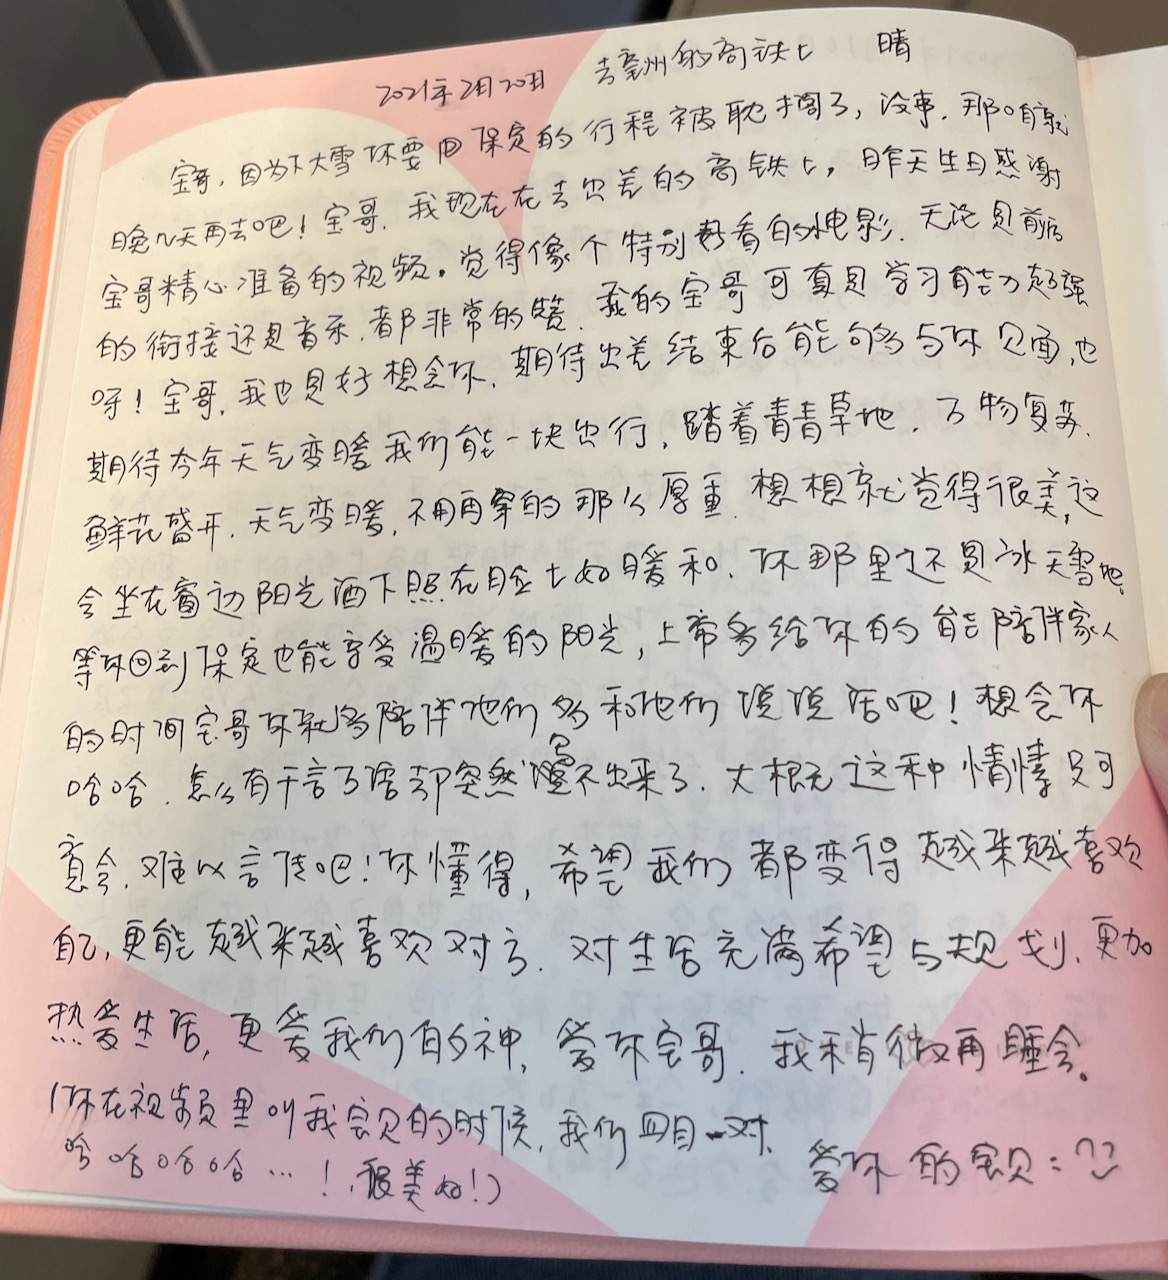 2021年2月20日 去亳州的高铁上 晴
宝哥,因为下大雪你要回保定的行程被耽搁了,没事,那咱就
晚几天再去吧!宝哥,我现在在去出差的高铁上,昨天生日感谢
宝哥精心准备的视频。觉得像个特别好看的电影,无论是前后
的衔接还是音乐,都非常的赞,我的宝哥可真是学习能力超强
呀!宝哥,我也是好想念你,期待出差结束后能够与你见面,也
期待今年天气变暖我们能一块出行,踏着青青草地,万物复苏,
鲜花盛开,天气变暖,不用再穿的那么厚重,想想就觉得很美,这
会坐在窗边阳光洒下照在脸上好暖和,你那里还是冰天雪地,
等你回到保定也能享受温暖的阳光,上帝多给你的能陪伴家人
的时间宝哥你就多陪伴他们多和他们说说话吧!想念你
哈哈,怎么有千言万语却突然写不出来了,大概这种情愫只可
意会,难以言传吧!你懂得,希望我们都变得越来越喜欢
自己,更能越来越喜欢对方,对生活充满希望与规划,更加
热爱生活,更爱我们的神,爱你宝哥,我稍微再睡会。
(你在视频里叫我宝贝的时候,我们四目一对,
哈哈哈哈…!很美好!) 爱你的宝贝: